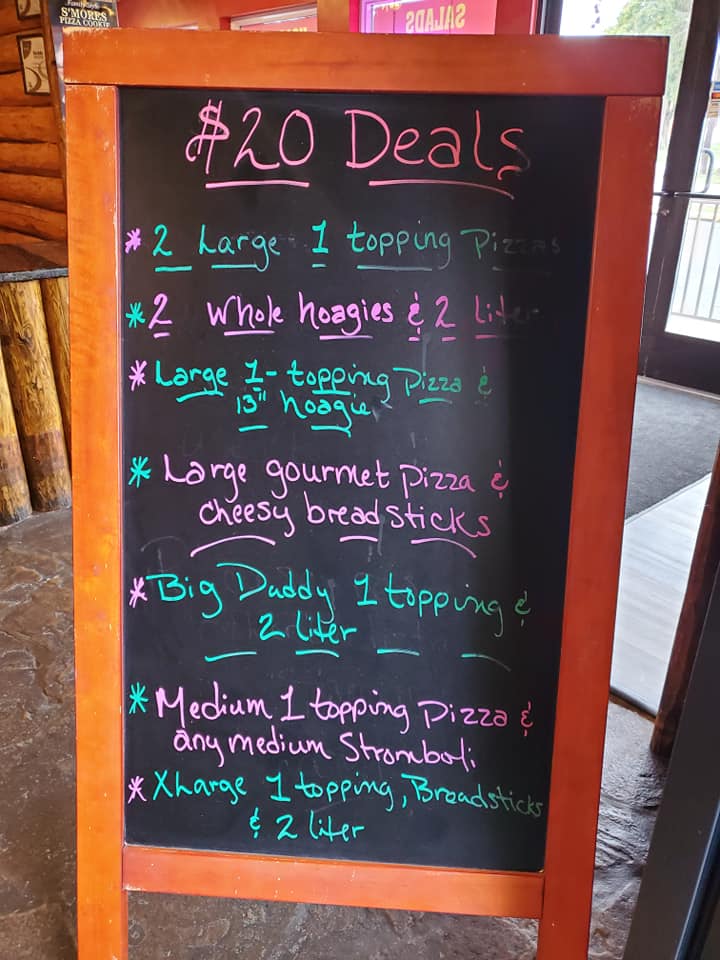 S'MORES
PIZZA COOKIE
SALADS
$20 Deals
* 2 Large 1 topping Pizzas
* 2 whole hoagies & 2 liter
* Large 1-topping Pizza &
13" hoagie
* Large gourmet pizza &
cheesy breadsticks
* Big Daddy 1 topping &
2 liter
* Medium 1 topping Pizza &
any medium Stromboli
* XLarge 1 topping, Breadsticks
& 2 liter